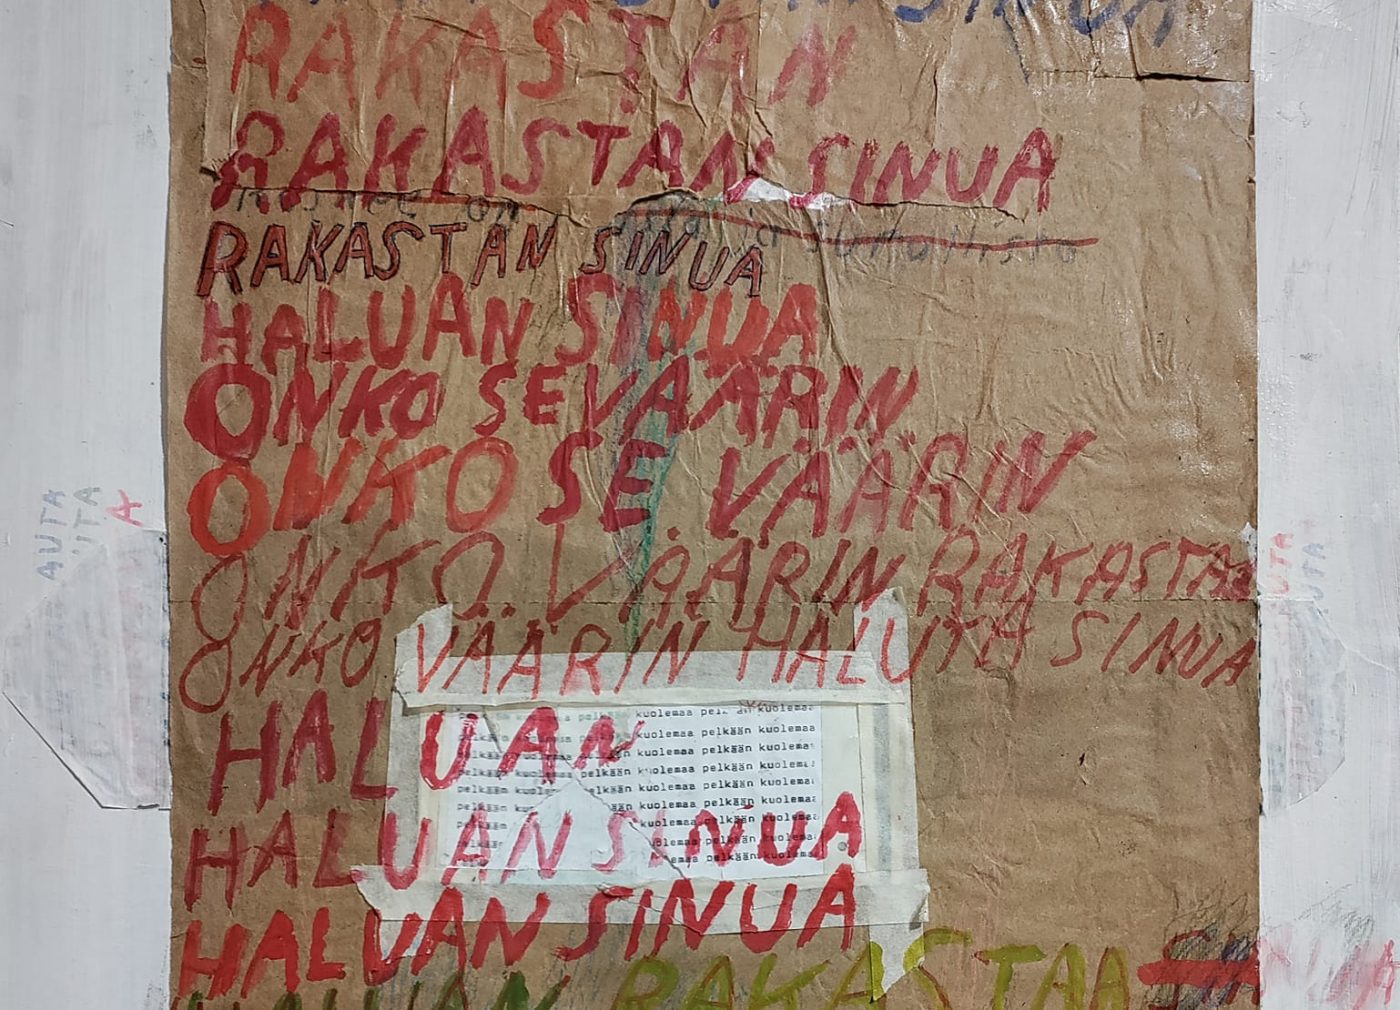 SINUA
RAKASTAN
RAKASTAN SINUA
on
RAKASTAN SINUA
HALUAN SINUA
ONKO SE VÄÄRIN
ONKO SE VÄÄRIN
ONKO VÄÄRIN RAKASTAA
ONKO VÄÄRIN HALUTA SINUA
HALUAN
kuolemaa
kuolemaa pelkään kuolemaa
kuolemaa pelkään kuolemaa
pelkään kuolemaa pelkään kuolemaa
pelkään kuolemaa pelkään kuolemaa
kuolemaa pelkään kuolemaa
kuolemaa pelkään kuolemaa
pelkään kuolemaa
pelkään kuolemaa
HALUAN SINUA
HALUAN SINUA
HALUAN RAKASTAA SINUA
AUTA